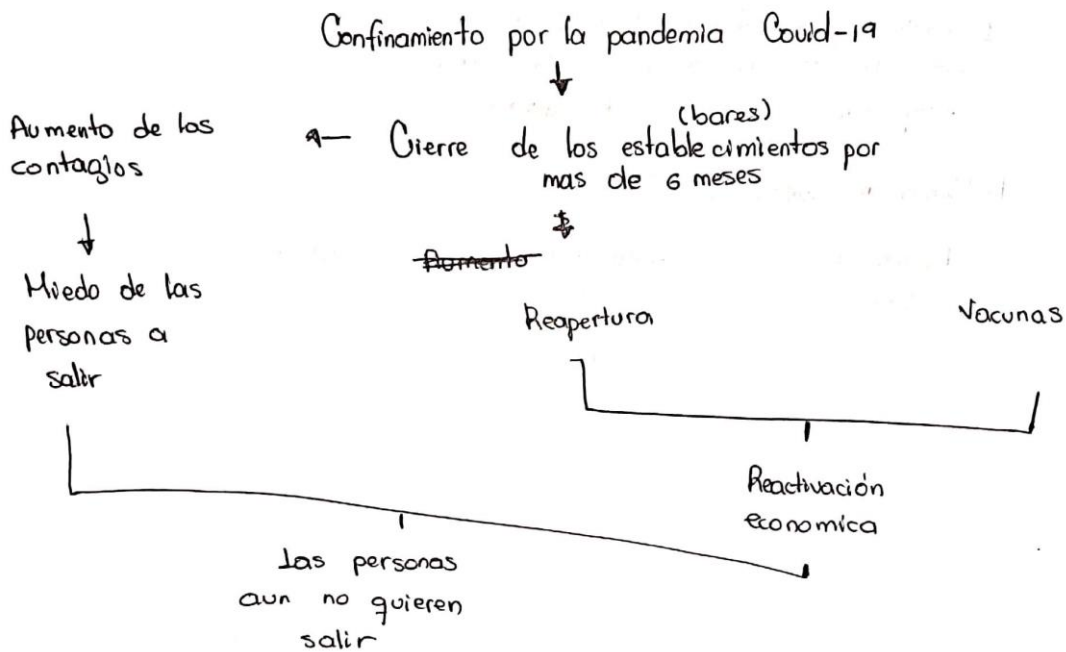 Confinamiento por la pandemia Covid-19
(bares)
Cierre de los establecimientos por
mas de 6 meses
Aumento de los
contagios
Miedo de las
personas a
salir
Aumento
Reapertura
Vacunas
Reactivación
economica
Las personas
aun no quieren
salir